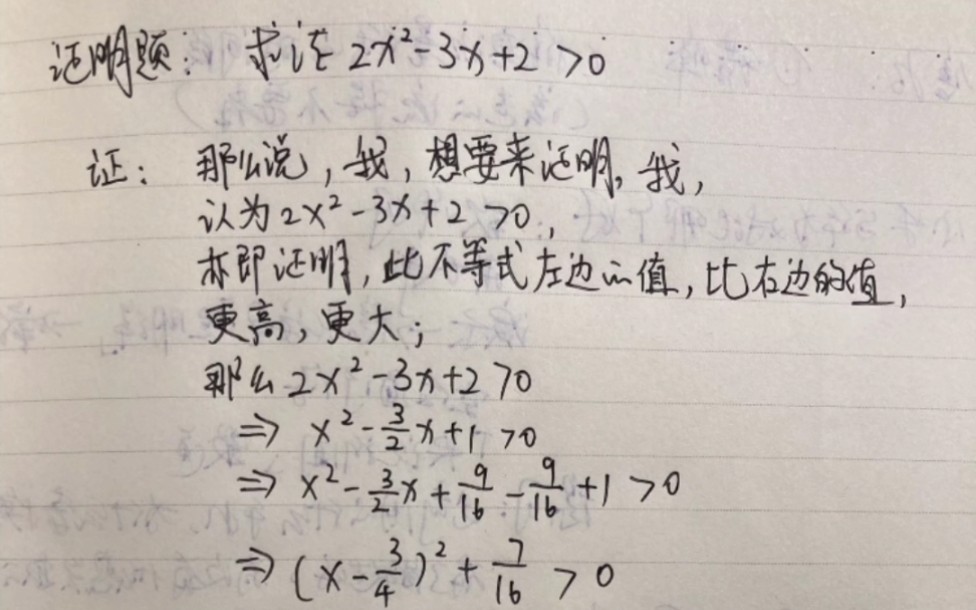 证明题: 求证 2x²-3x+2>0
证: 那么说,我,想要来证明,我,
认为 2x²-3x+2>0,
亦即证明,此不等式左边的值,比右边的值,
更高,更大;
那么 2x²-3x+2>0
⇒ x²-3/2x+1>0
⇒ x²-3/2x+9/16-9/16+1>0
⇒ (x-3/4)²+7/16>0